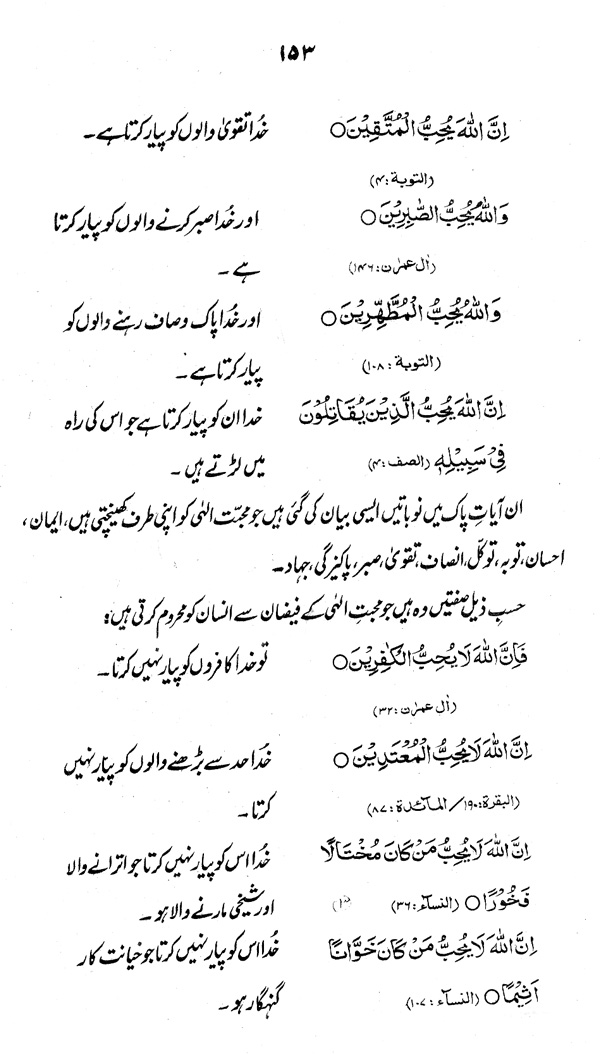 ۱۵۳
اِنَّ اللّٰهَ يُحِبُّ الْمُتَّقِيْنَ○ خُدا تقویٰ والوں کو پیار کرتا ہے۔
(التوبة:۴)
وَاللّٰهُ يُحِبُّ الصّٰبِرِيْنَ○ اور خُدا صبر کرنے والوں کو پیار کرتا
(اٰل عمرٰن:۱۴۶) ہے۔
وَاللّٰهُ يُحِبُّ الْمُطَّهِّرِيْنَ○ اور خُدا پاک و صاف رہنے والوں کو
(التوبة:۱۰۸) پیار کرتا ہے۔
اِنَّ اللّٰهَ يُحِبُّ الَّذِيْنَ يُقَاتِلُوْنَ خدا ان کو پیار کرتا ہے جو اس کی راہ
فِيْ سَبِيْلِهٖ (الصف:۴) میں لڑتے ہیں۔
ان آیاتِ پاک میں نو باتیں ایسی بیان کی گئی ہیں جو محبّت الٰہی کو اپنی طرف کھینچتی ہیں، ایمان،
احسان، توبہ، توکّل، انصاف، تقویٰ، صبر، پاکیزگی، جہاد۔
حسبِ ذیل صفتیں وہ ہیں جو محبتِ الٰہی کے فیضان سے انسان کو محروم کرتی ہیں:
فَاِنَّ اللّٰهَ لَا يُحِبُّ الْكٰفِرِيْنَ○ تو خدا کافروں کو پیار نہیں کرتا۔
(اٰل عمرٰن:۳۲)
اِنَّ اللّٰهَ لَا يُحِبُّ الْمُعْتَدِيْنَ○ خُدا حد سے بڑھنے والوں کو پیار نہیں
(البقرة:۱۹۰/المآئدة:۸۷) کرتا۔
اِنَّ اللّٰهَ لَا يُحِبُّ مَنْ كَانَ مُخْتَالًا خُدا اس کو پیار نہیں کرتا جو اترانے والا
فَخُوْرًا○ (النسآء:۳۶) اور شیخی مارنے والا ہو۔
اِنَّ اللّٰهَ لَا يُحِبُّ مَنْ كَانَ خَوَّانًا خُدا اس کو پیار نہیں کرتا جو خیانت کار
اَثِيْمًا○ (النسآء:۱۰۷) گنہگار ہو۔